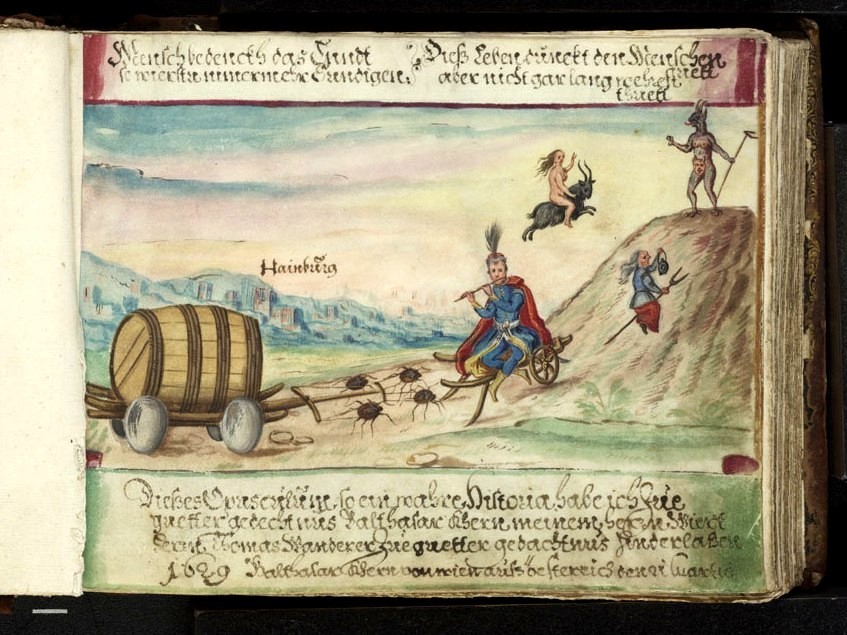 Mensch bedenckh das Endt
so wierstu nimermehr Sündigen.
Dieß Leben dünckt den Menschen
aber nicht gar lang wehrest
Hainburg
Dießes Opusculum, so ein wahre Historia, habe ich Zue
guetter gedechtnus Balthasar Khern meinem
Herrn Thomas Wanderer zue guetter gedachtnus hinderlaßen
1629 Balthasar Khern von wien auß Oesterreich den